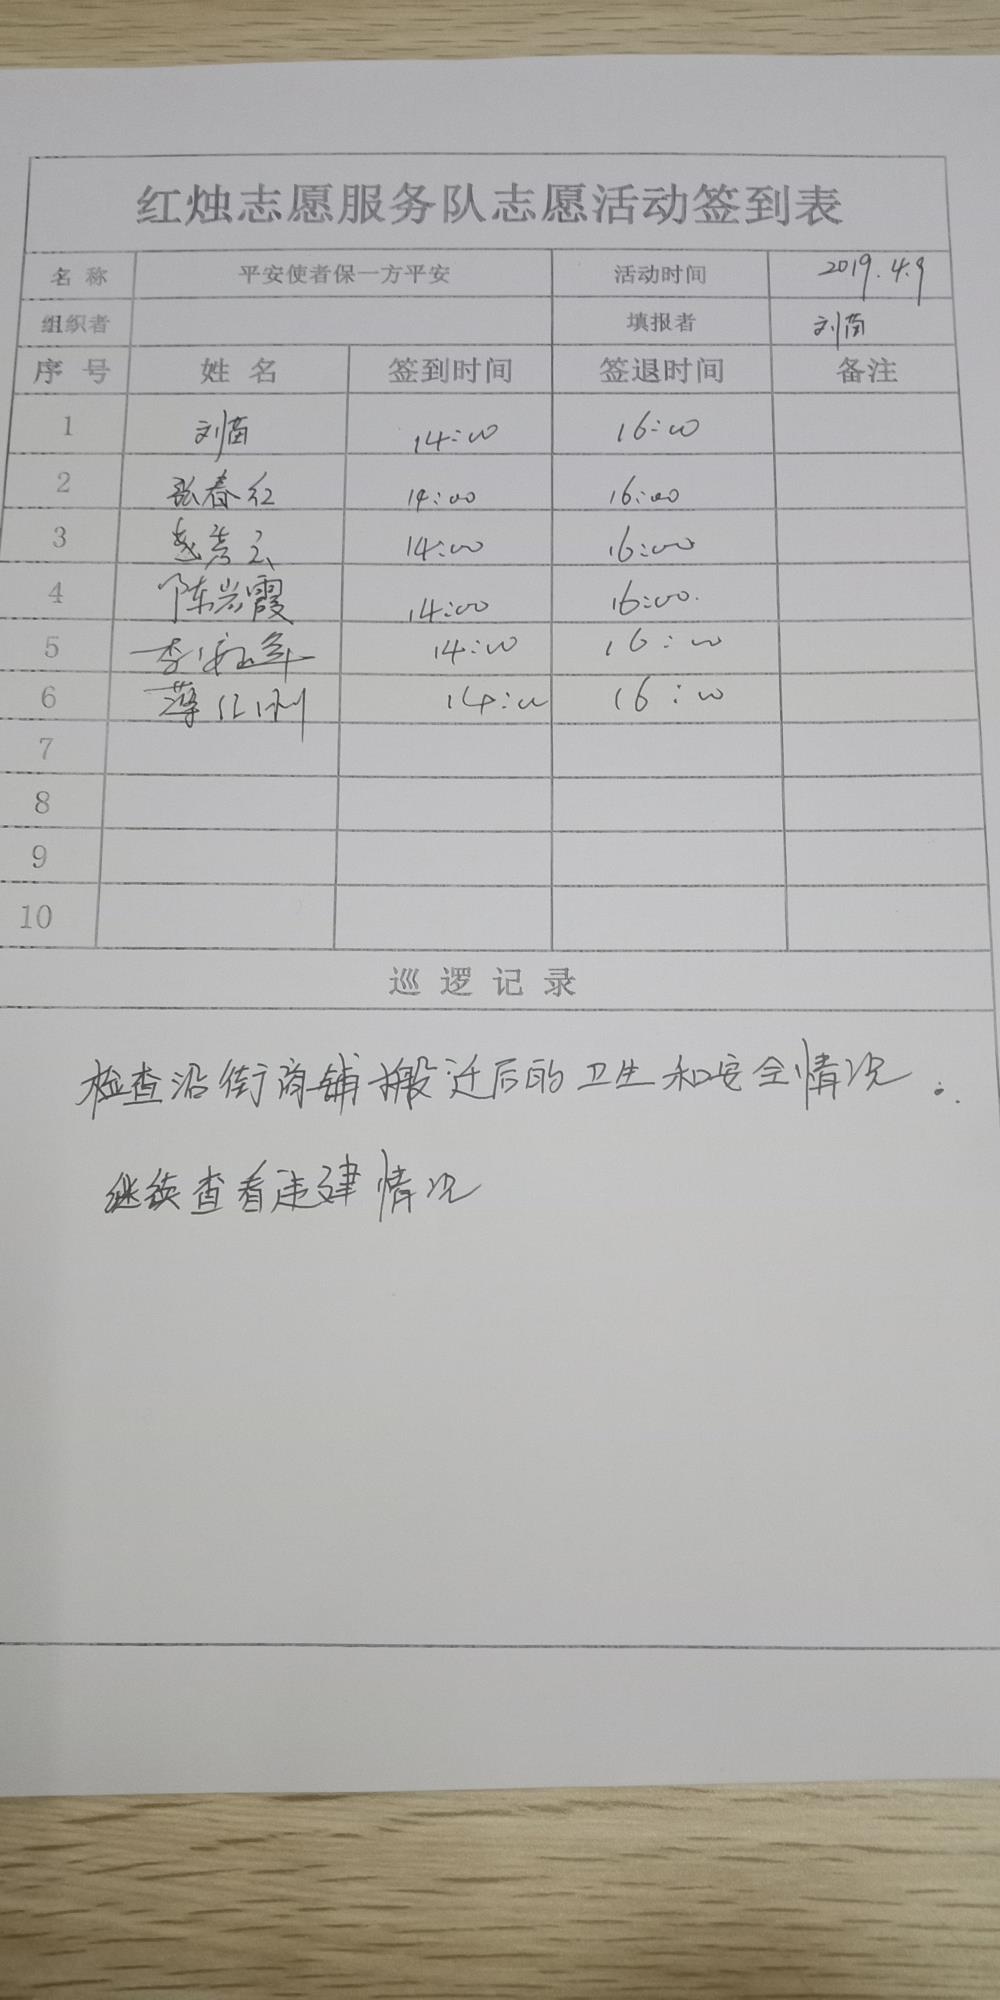 红烛志愿服务队志愿活动签到表
名 称 平安使者保一方平安 活动时间 2019.4.9
组织者 填报者 刘苗
序 号 姓 名 签到时间 签退时间 备注
1 刘苗 14:00 16:00
2 张春红 14:00 16:00
3 14:00 16:00
4 陈岩霞 14:00 16:00.
5 李 14:00 16:00
6 薄 14:00 16:00
7
8
9
10
巡 逻 记 录
检查沿街商铺搬迁后的卫生和安全情况.
继续查看违建情况